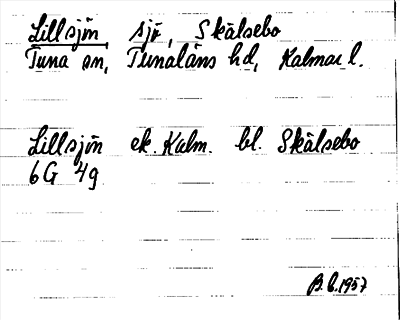 Lillsjön, sjö, Skälsebo
Tuna sn, Tunaläns hd, Kalmar l.
Lillsjön ek. Kalm. bl. Skälsebo
6G 4g
B.L. 1957